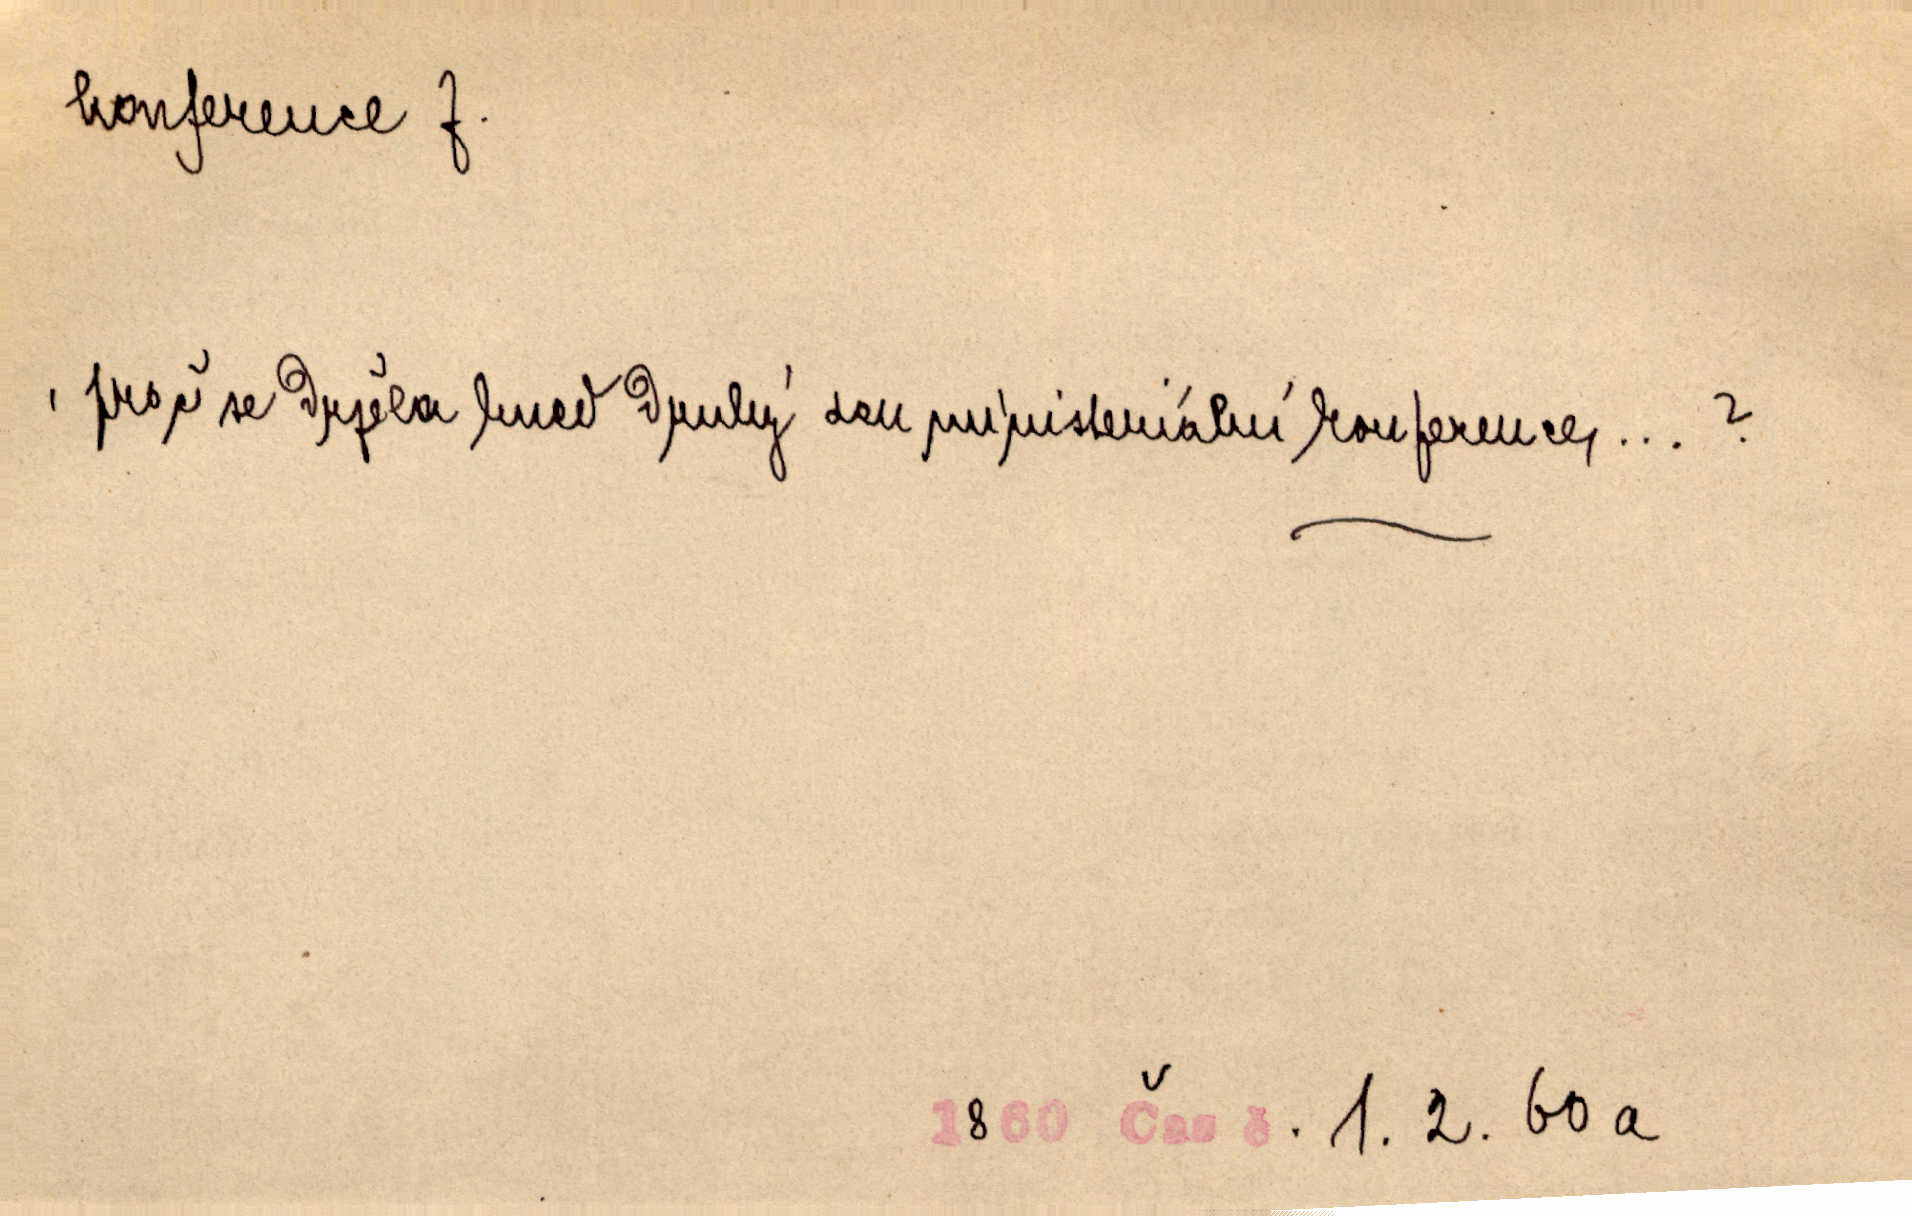 konference f.
, proč se držela hned druhý den ministeriální konference, ... ?
1860 Čas č. 1. 2. 60 a